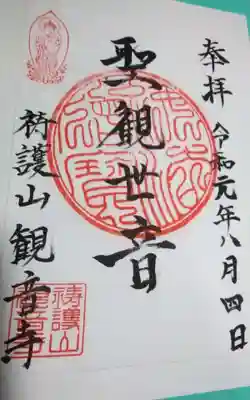 奉拝 令和元年八月四日
聖観世音
祷護山 観音寺
祷護山